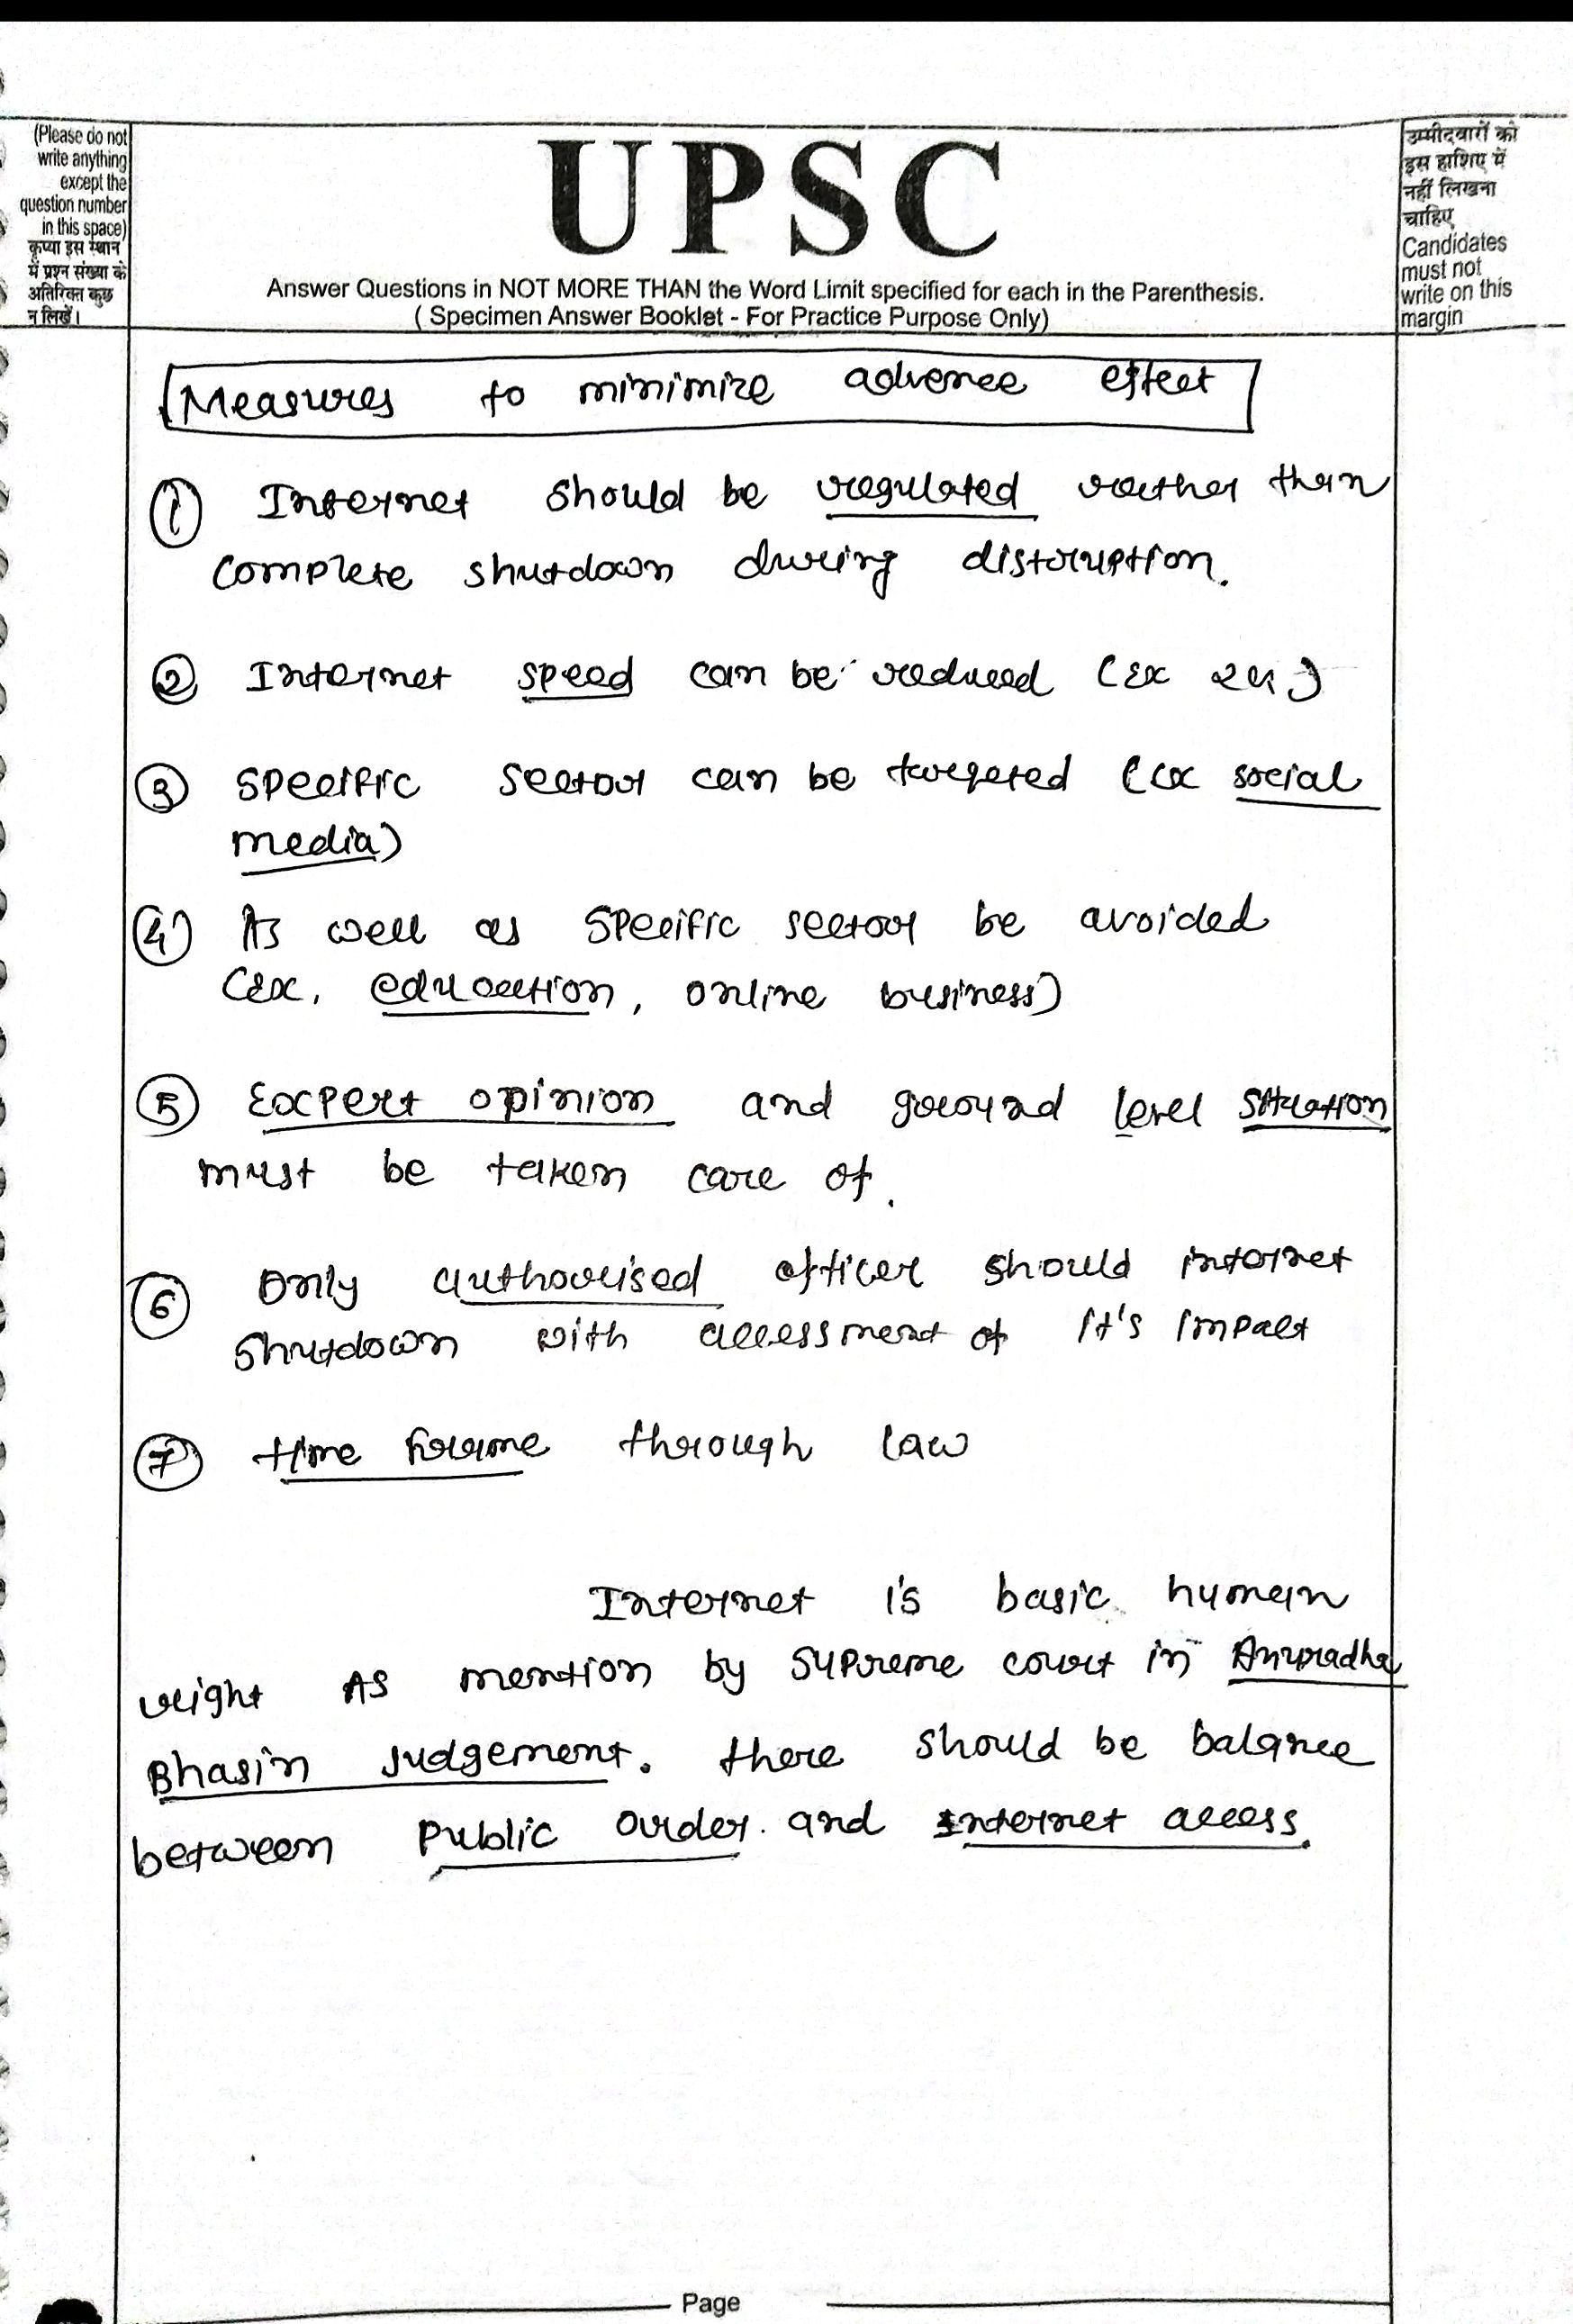 (Please do not
write anything
except the
question number
in this space)
कृप्या इस स्थान
में प्रश्न संख्या के
अतिरिक्त कुछ
न लिखें।
UPSC
Answer Questions in NOT MORE THAN the Word Limit specified for each in the Parenthesis.
( Specimen Answer Booklet - For Practice Purpose Only)
उम्मीदवारों को
इस हाशिए में
नहीं लिखना
चाहिए
Candidates
must not
write on this
margin
Measures to minimize adverse effect
① Internet should be regulated rather than
complete shutdown during distruption.
② Internet speed can be reduced (Ex 2G)
③ Specific sector can be targeted (Ex social
media)
④ As well as specific sector be avoided
(Ex. education, online business)
⑤ Expert opinion and ground level situation
must be taken care of.
⑥ Only authorised officer should internet
shutdown with accessment of it's impact
⑦ time frame through law
Internet is basic human
right As mention by Supreme court in Anuradha
Bhasin Judgement. there should be balance
between public order and internet access.
Page